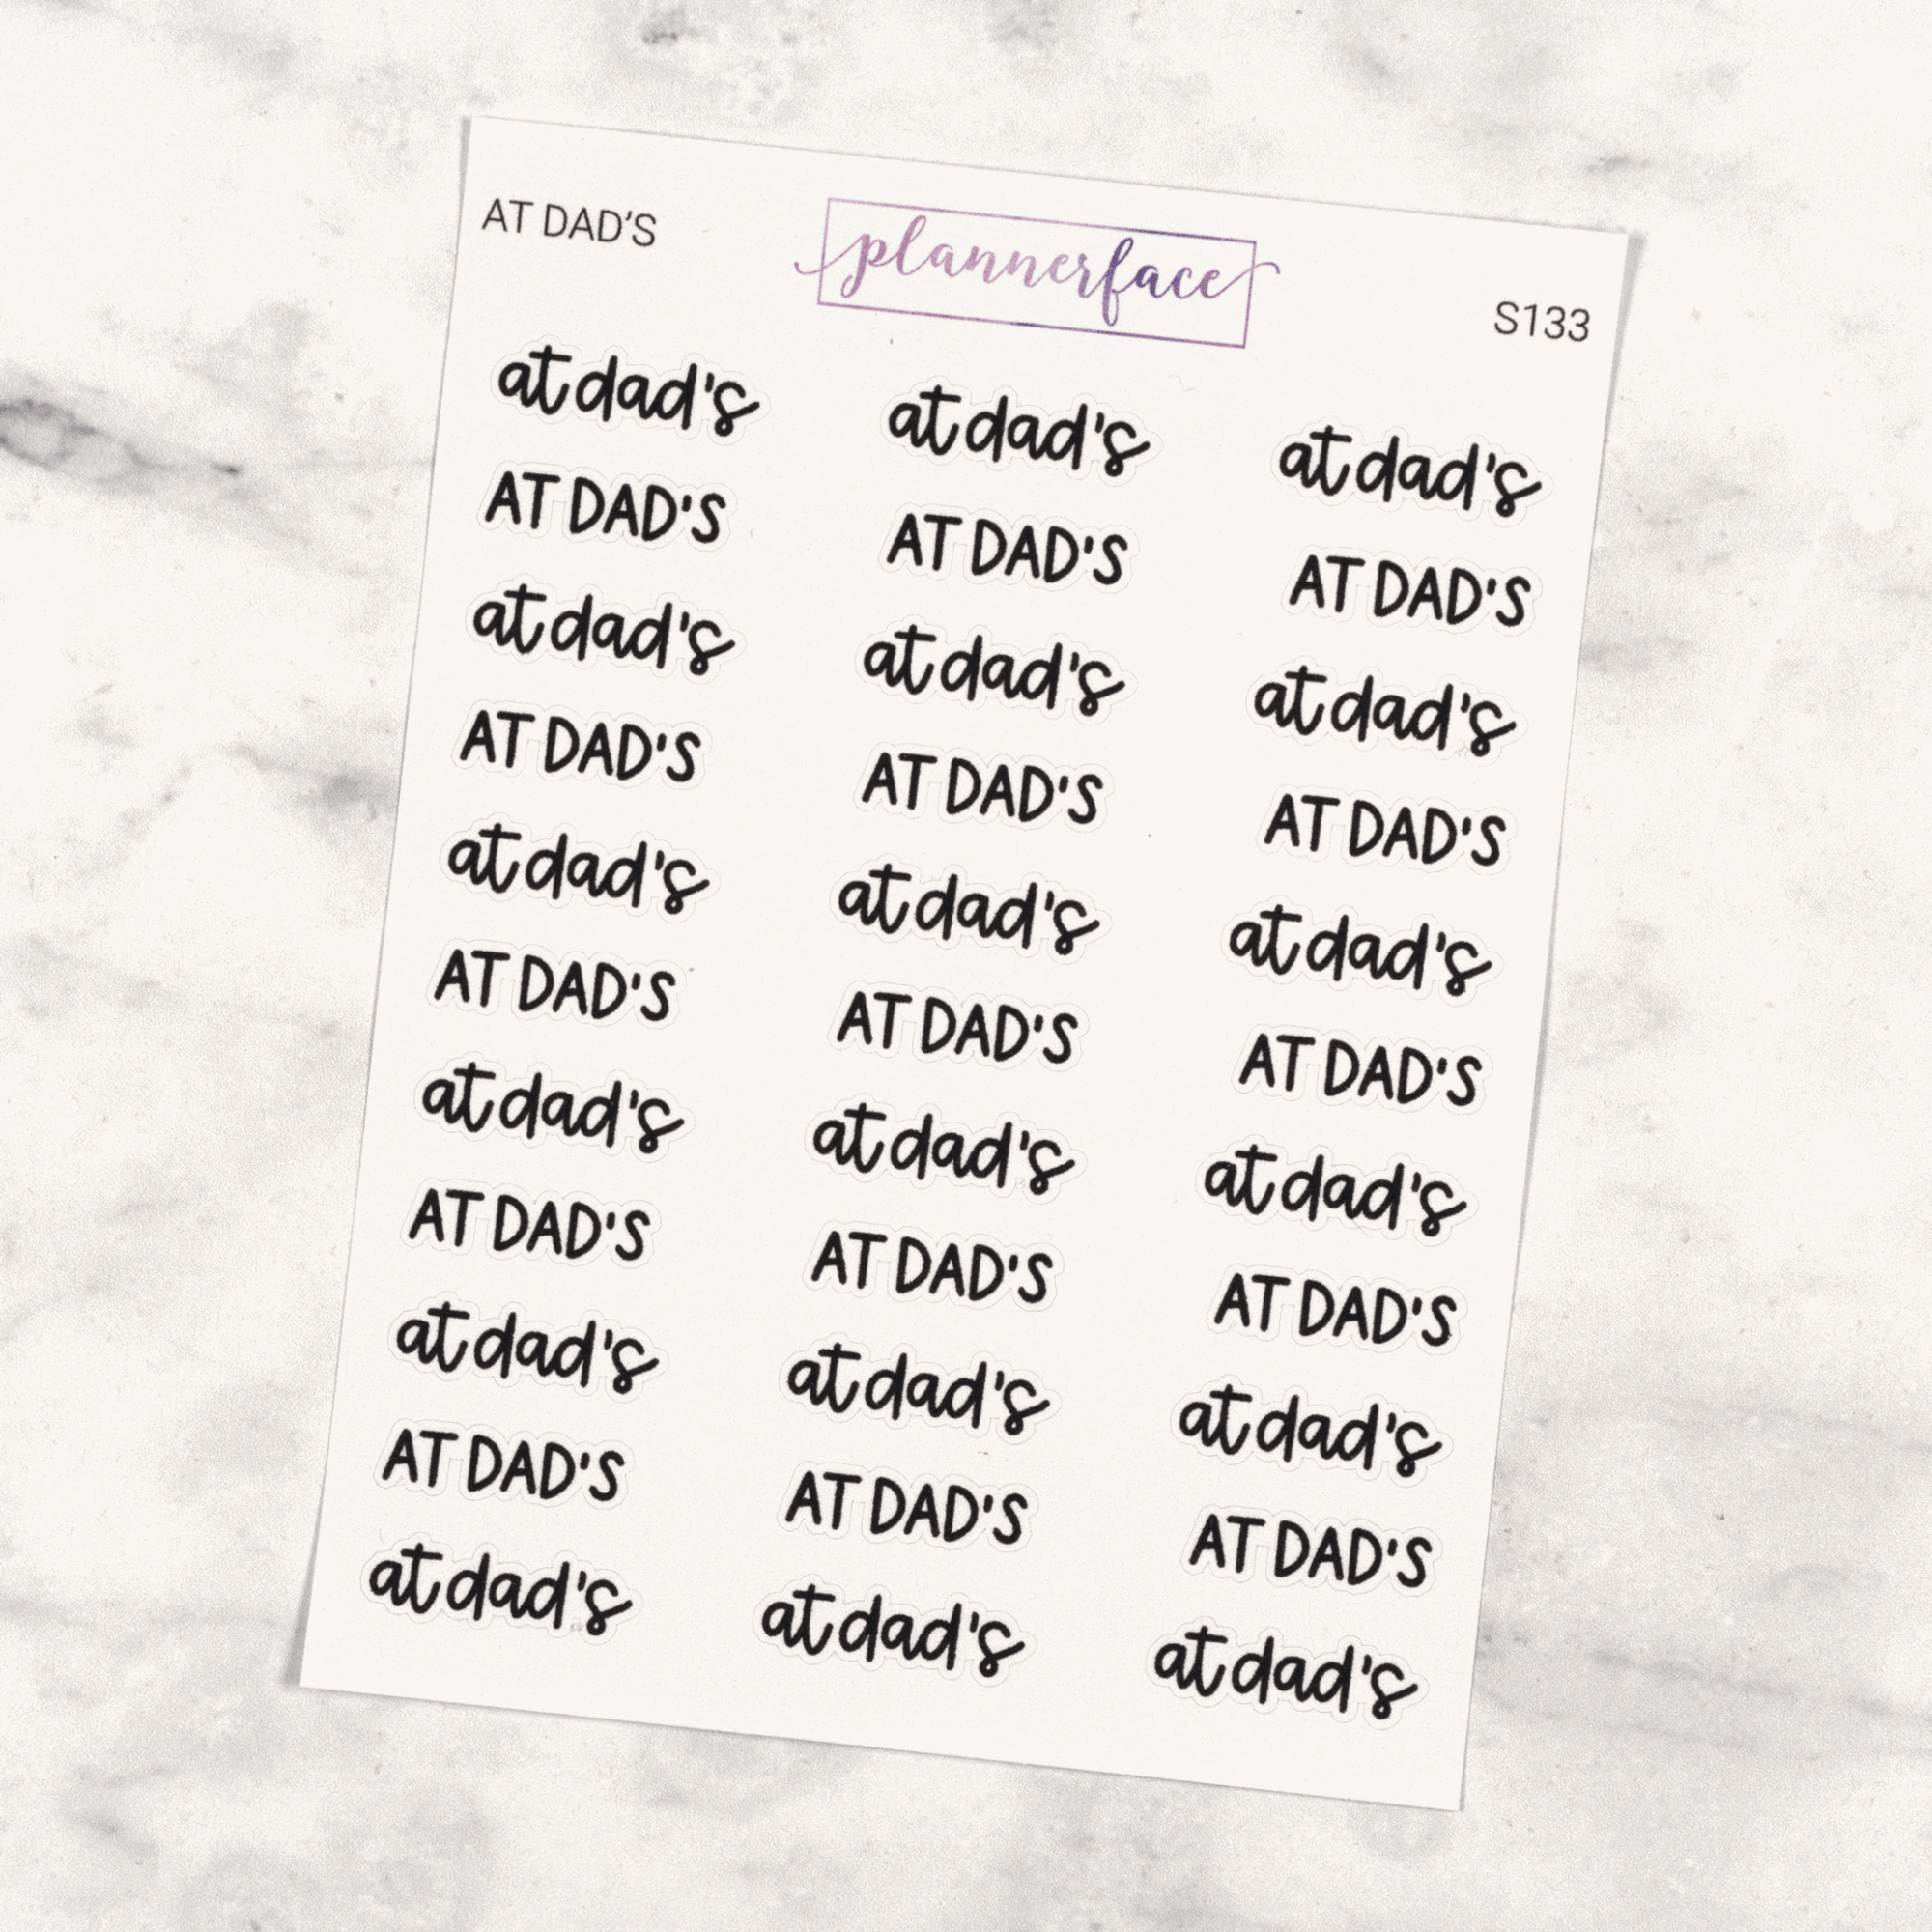 AT DAD'S plannerface S133
at dad's at dad's at dad's
AT DAD'S AT DAD'S AT DAD'S
at dad's at dad's at dad's
AT DAD'S AT DAD'S AT DAD'S
at dad's at dad's at dad's
AT DAD'S AT DAD'S AT DAD'S
at dad's at dad's at dad's
AT DAD'S AT DAD'S AT DAD'S
at dad's at dad's at dad's
AT DAD'S AT DAD'S AT DAD'S
at dad's at dad's at dad's